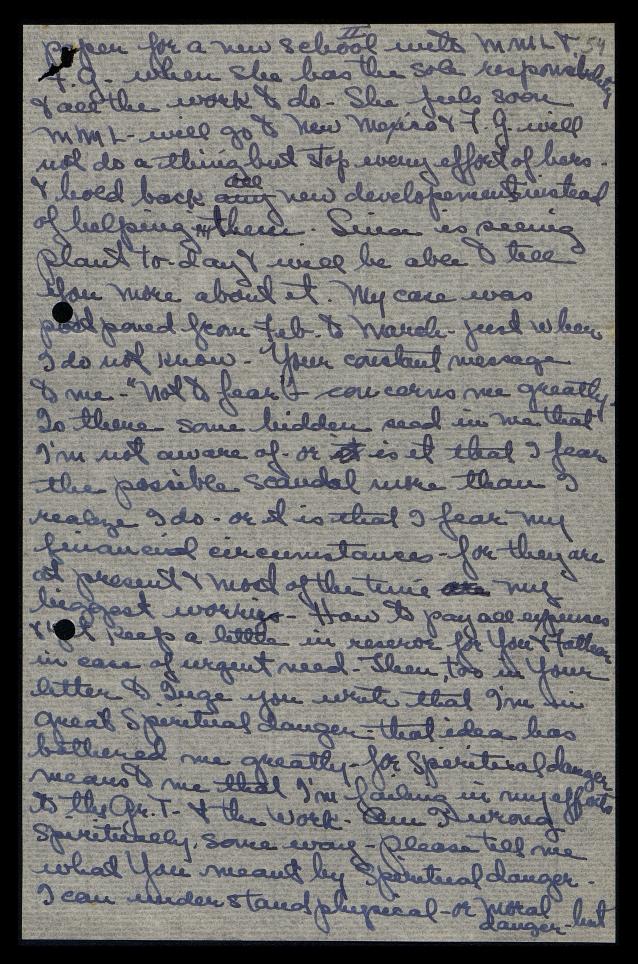 II
54
paper for a new school with M.M.L. &
F.G. when she has the sole responsibility
& all the work to do - She feels soon
M.M.L - will go to New Mexico & F.G. will
not do a thing but stop every effort of hers -
& hold back any all new developements instead
of helping them. Sina is seeing
Plant to-day & will be able to tell
You more about it. My case was
postponed from Feb. to March - just when
I do not know - Your constant message
to me - "Not to fear" - concerns me greatly.
Is there some hidden seed in me that
I'm not aware of - or it is it that I fear
the possible scandal more than I
realize I do - or it is that I fear my
financial circumstances - for they are
at present & most of the time are my
biggest worries - How to pay all expenses
& yet keep a little in reserve for You & Father
in case of urgent need. Then, too in Your
letter to Inge you write that I'm in
great Spiritual danger - that idea has
bothered me greatly - for Spiritual danger
means to me that I'm failing in my efforts
to the Gr. T. - & the Work. Am I wrong
Spiritually, some way - please tell me
what You meant by Spiritual danger -
I can understand physical - or moral
danger - but